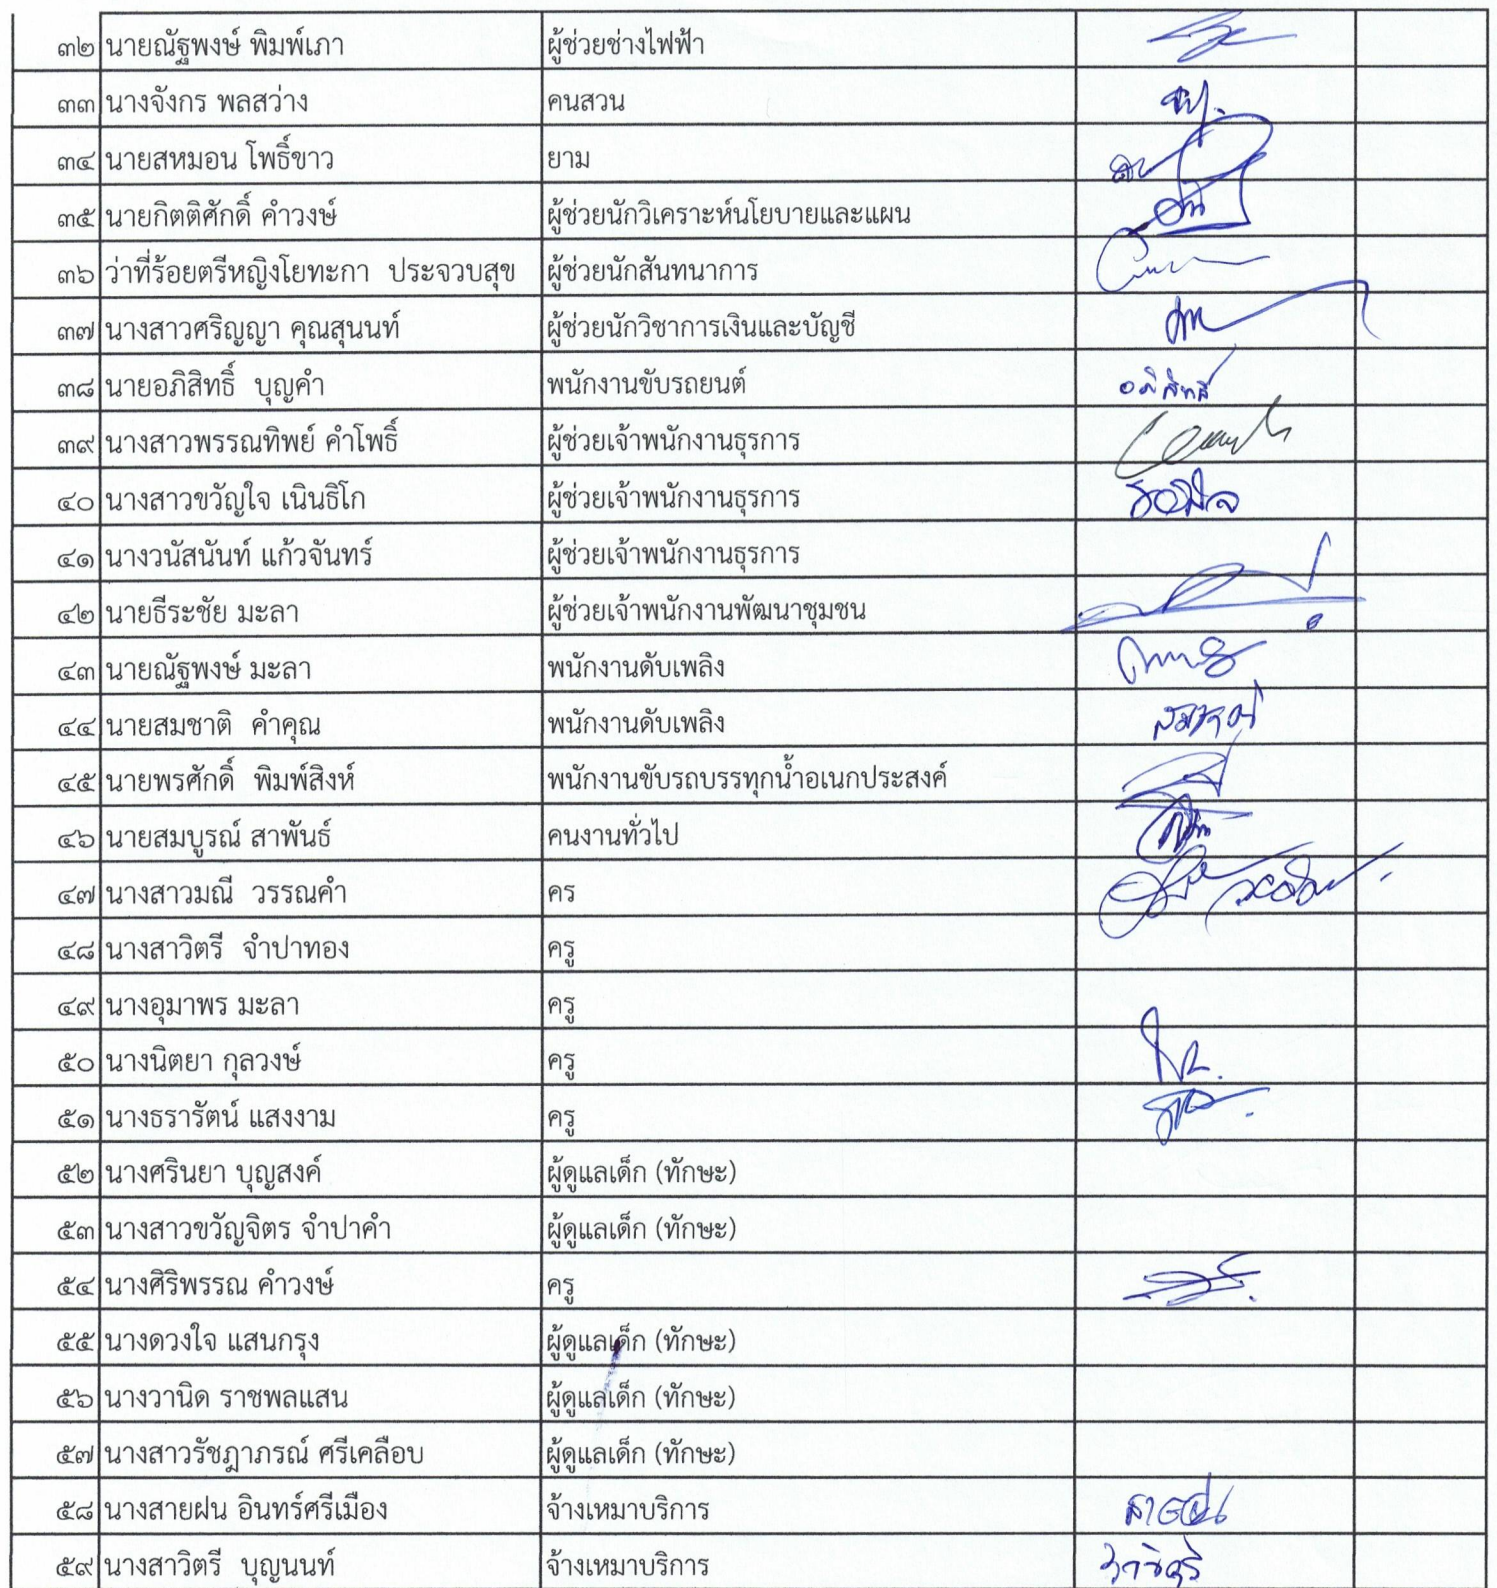 ๓๒ นายณัฐพงษ์ พิมพ์เภา ผู้ช่วยช่างไฟฟ้า
๓๓ นางจังกร พลสว่าง คนสวน
๓๔ นายสหมอน โพธิ์ขาว ยาม
๓๕ นายกิตติศักดิ์ คำวงษ์ ผู้ช่วยนักวิเคราะห์นโยบายและแผน
๓๖ ว่าที่ร้อยตรีหญิงโยทะกา ประจวบสุข ผู้ช่วยนักสันทนาการ
๓๗ นางสาวศริญญา คุณสุนนท์ ผู้ช่วยนักวิชาการเงินและบัญชี
๓๘ นายอภิสิทธิ์ บุญคำ พนักงานขับรถยนต์ อภิสิทธิ์
๓๙ นางสาวพรรณทิพย์ คำโพธิ์ ผู้ช่วยเจ้าพนักงานธุรการ
๔๐ นางสาวขวัญใจ เนินธิโก ผู้ช่วยเจ้าพนักงานธุรการ
๔๑ นางวนัสนันท์ แก้วจันทร์ ผู้ช่วยเจ้าพนักงานธุรการ
๔๒ นายธีระชัย มะลา ผู้ช่วยเจ้าพนักงานพัฒนาชุมชน
๔๓ นายณัฐพงษ์ มะลา พนักงานดับเพลิง
๔๔ นายสมชาติ คำคุณ พนักงานดับเพลิง
๔๕ นายพรศักดิ์ พิมพ์สิงห์ พนักงานขับรถบรรทุกน้ำอเนกประสงค์
๔๖ นายสมบูรณ์ สาพันธ์ คนงานทั่วไป
๔๗ นางสาวมณี วรรณคำ คร
๔๘ นางสาวิตรี จำปาทอง ครู
๔๙ นางอุมาพร มะลา ครู
๕๐ นางนิตยา กุลวงษ์ ครู
๕๑ นางธรารัตน์ แสงงาม ครู
๕๒ นางศรินยา บุญสงค์ ผู้ดูแลเด็ก (ทักษะ)
๕๓ นางสาวขวัญจิตร จำปาคำ ผู้ดูแลเด็ก (ทักษะ)
๕๔ นางศิริพรรณ คำวงษ์ ครู
๕๕ นางดวงใจ แสนกรุง ผู้ดูแลเด็ก (ทักษะ)
๕๖ นางวานิด ราชพลแสน ผู้ดูแลเด็ก (ทักษะ)
๕๗ นางสาวรัชฎาภรณ์ ศรีเคลือบ ผู้ดูแลเด็ก (ทักษะ)
๕๘ นางสายฝน อินทร์ศรีเมือง จ้างเหมาบริการ สายฝน
๕๙ นางสาวิตรี บุญนนท์ จ้างเหมาบริการ สาวิตรี